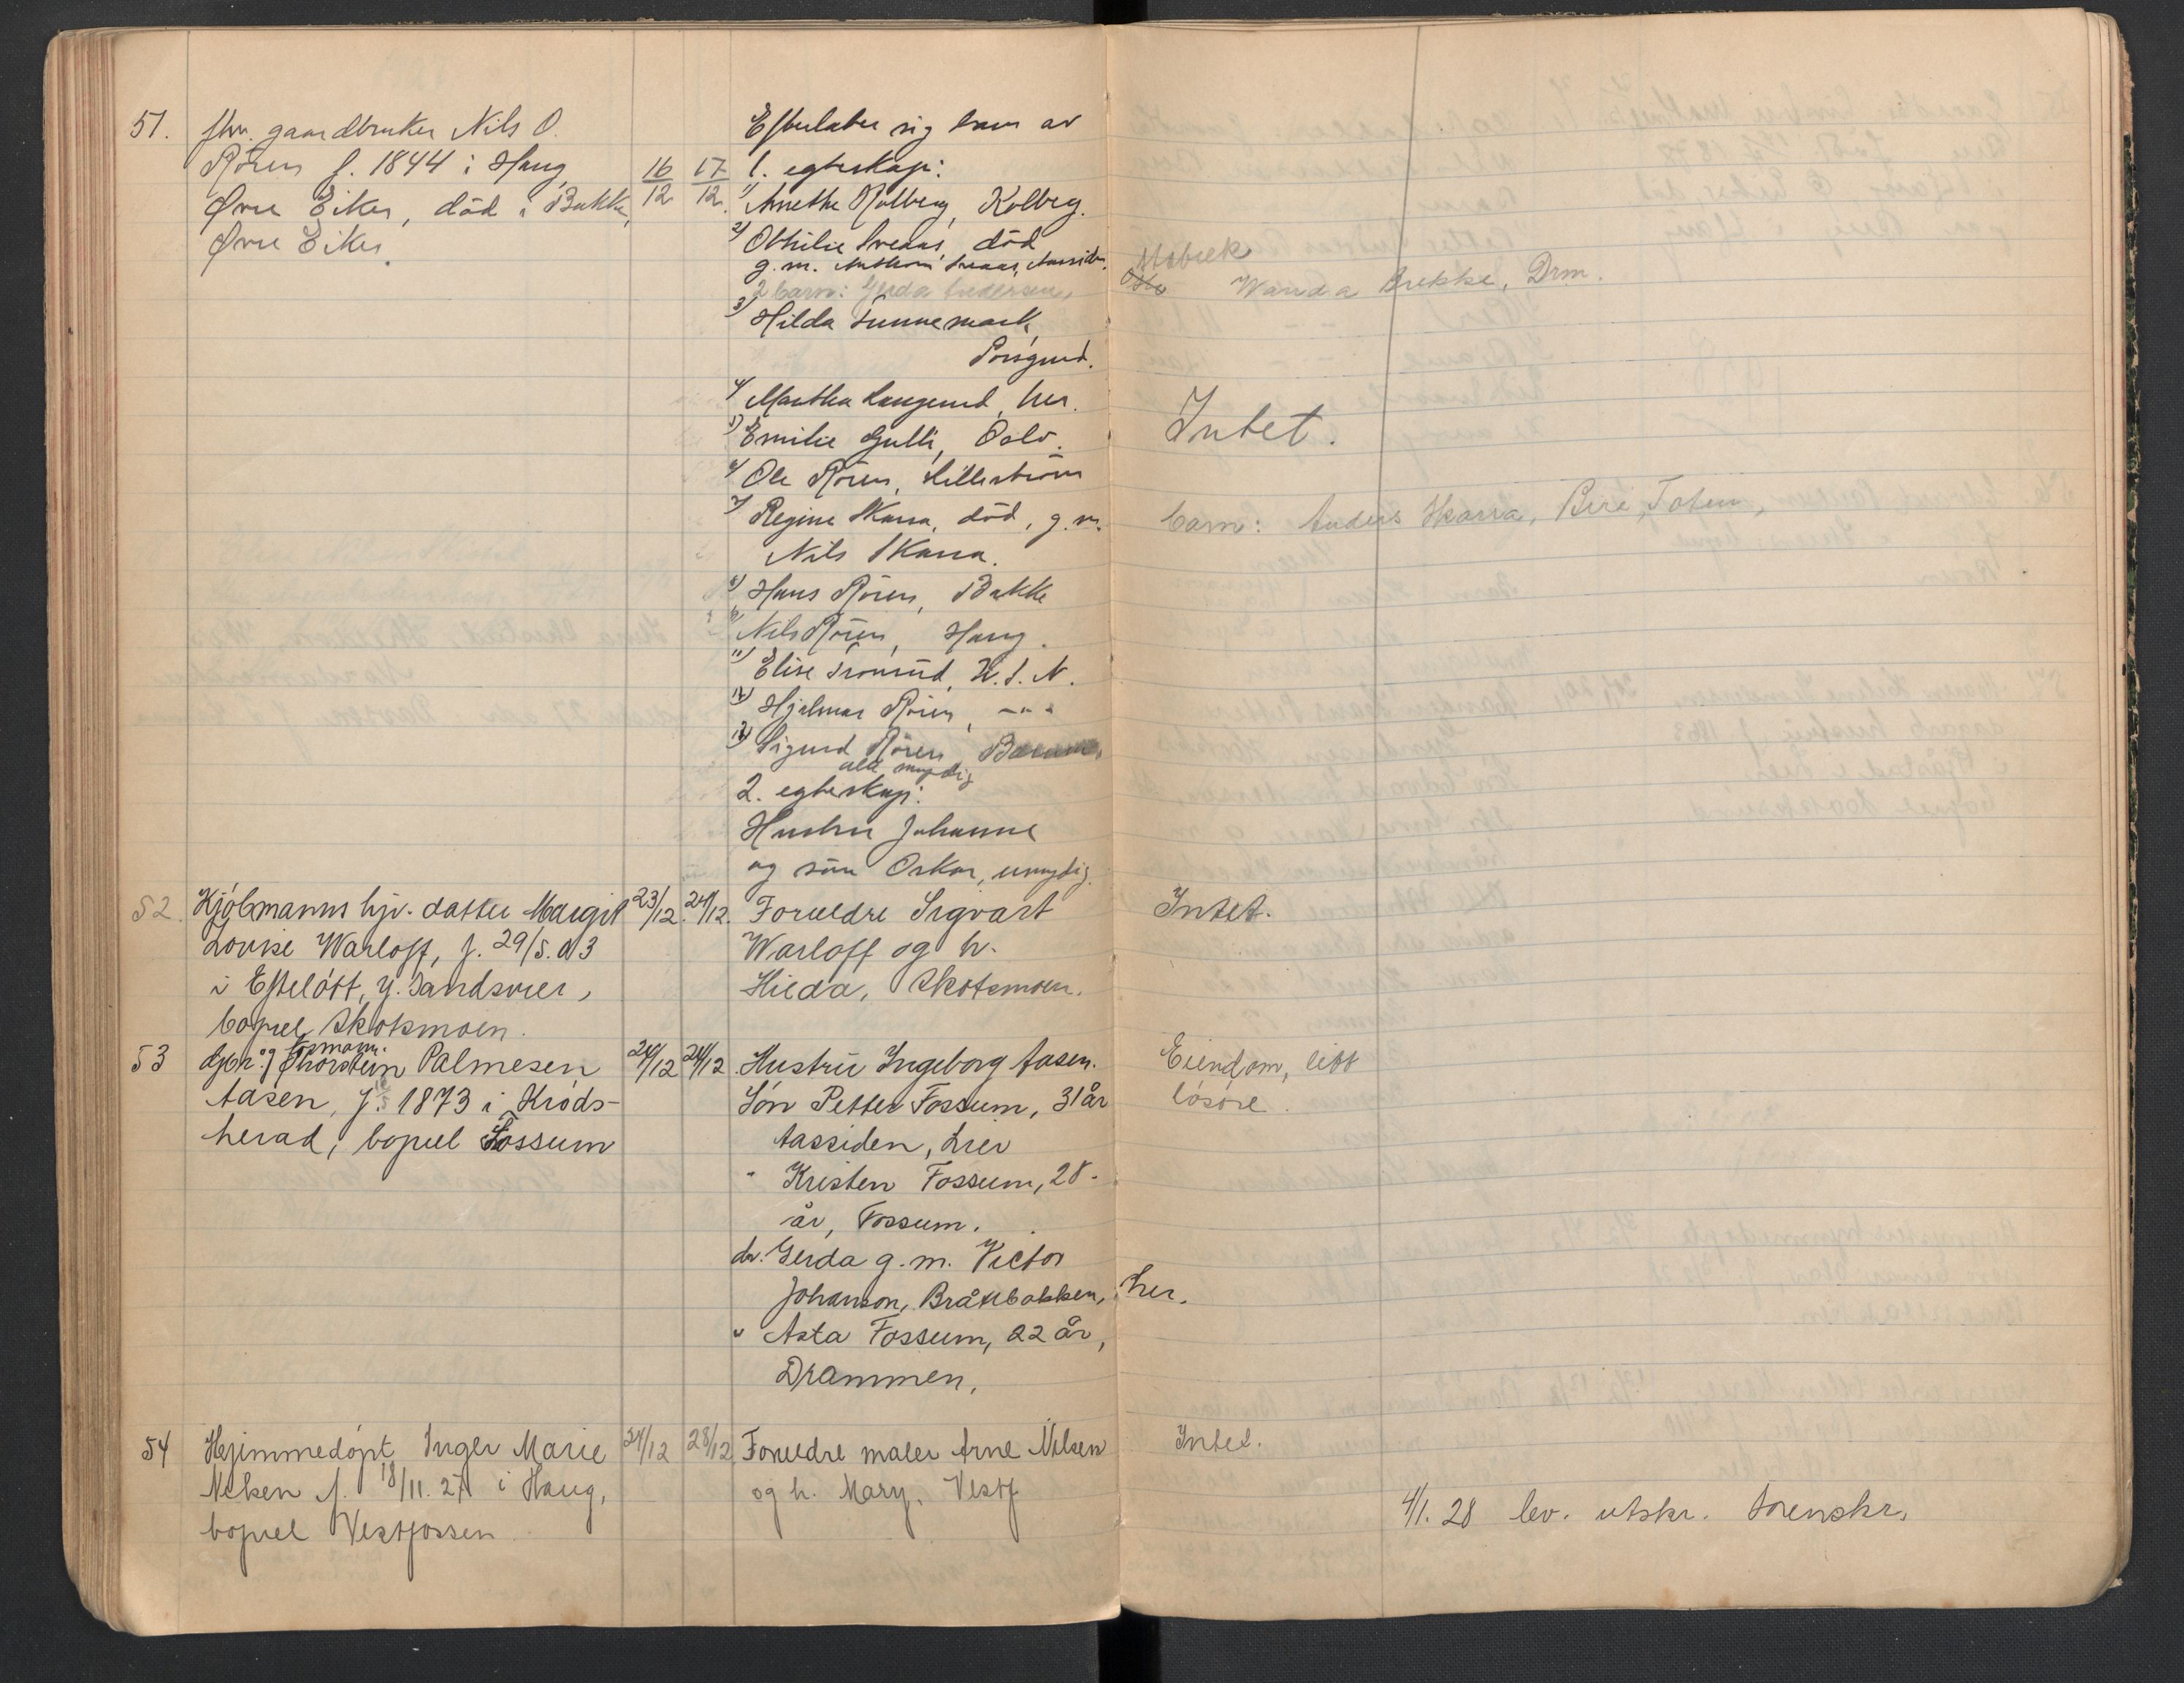 51.
fhv. gaardbruker Nils O.
Rören f. 1844 i Haug,
Øvre Eiker, död i Bakke,
Øvre Eiker.
16/12 17/12.
Efterlater sig barn av
1. egteskap:
1) Anethe Kolberg, Kolbrg.
2) Othilie Sveaas, död
g. m. Anthon Sveaas, Aassiden.
2 barn: Gerda Andersen, Modum
Oslo Wanda Brekke, Drm.
3) Hilda Lunnemark,
Porsgrund.
4) Martha Langerud, her.
5) Emilie Gulli, Oslo.
6) Ole Rören, Lilleström
7) Regine Skarra, död, g. m.
Nils Skarra.
8) Hans Rören, Bakke
Nils Rören, Haug.
11) Elise Tromsud, U.S.N.
12) Hjalmar Rören, -"-
Sigurd Rören Bærum,
alle myndig
2. egteskap:
Hustru Johanne
og sön Oskar, umyndig.
Intet.
barn: Anders Skarra, Biri, Toten,
52.
Kjöbmanns hjv. datter Margit
Lovise Warloff, f. 29/5. 03
i Efteløtt, Y. Sandsvær,
bopæl Skotsmoen.
23/12. 24/12.
Forældre Sigvart
Warloff og h.
Hilda, Skotsmoen.
Intet.
53
gbr. og tømmerm.
Thorstein Palmesen
Aasen, f. 1873 i Kröds-
herad, bopæl Fossum
24/12 24/12.
Hustru Ingeborg Aasen.
Sön Petter Fossum, 31 år
Aassiden, Lier
" Kristen Fossum, 28
år, Fossum.
dr. Gerda g. m. Victor
Johanson, Bråtebakken, her.
" Asta Fossum, 22 år,
Drammen,
Eiendom, litt
lösöre.
54
Hjemmedöpt Inger Marie
Nilsen f. 18/11. 27 i Haug,
bopæl Vestfossen
24/12 28/12
Forældre maler Arne Nilsen
og h. Mary, Vestf
Intet.
4/1. 28 lev. utskr. Sorenskr.